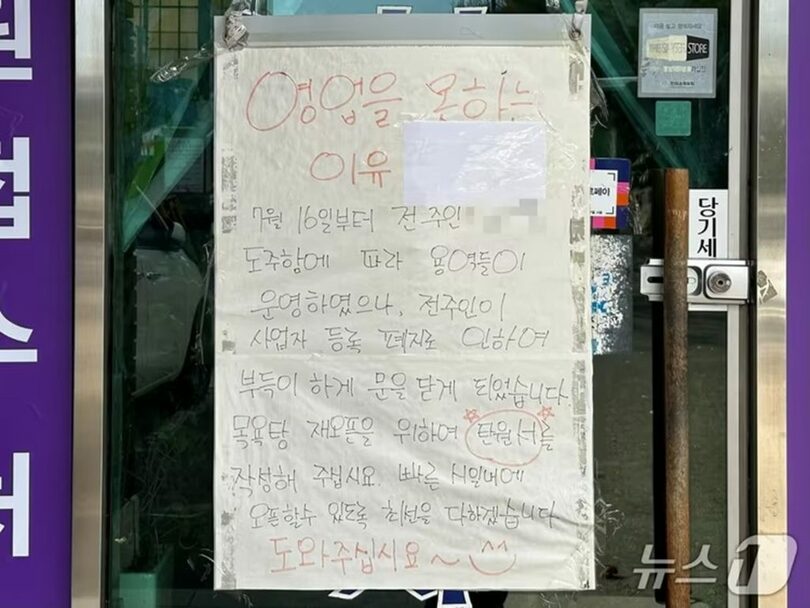 영업을 못하는
이유
7월 16일부터 전주인
도주함에 따라 용역들이
운영하였으나, 전주인이
사업자 등록 폐지로 인하여
부득이 하게 문을 닫게 되었습니다
목욕탕 재오픈을 위하여 탄원서를
작성해 주십시요. 빠른 시일내에
오픈할수 있도록 최선을 다하겠습니다
도와주십시요~
STORE
당기세
뉴스1